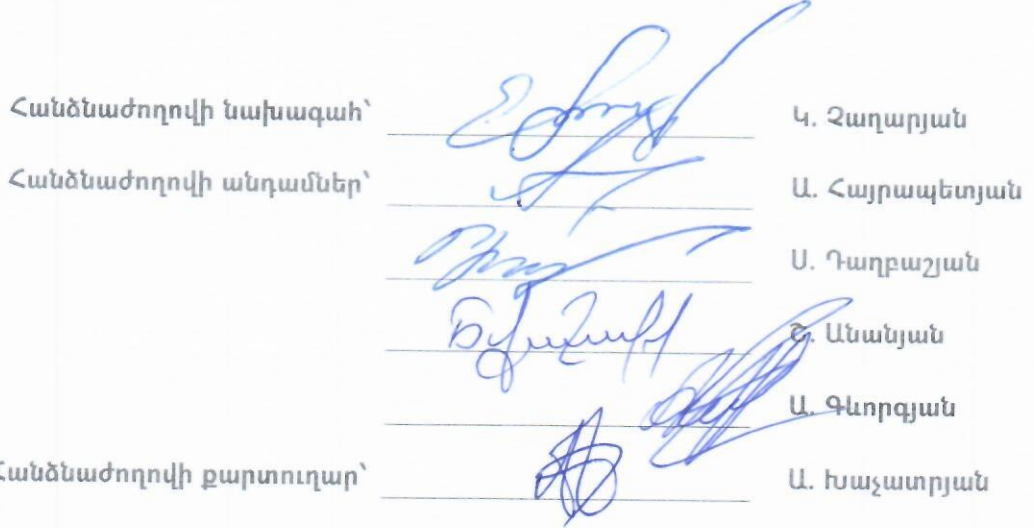 Հանձնաժողովի նախագահ՝ Կ. Չաղարյան
Հանձնաժողովի անդամներ՝ Ա. Հայրապետյան
Ս. Դաղբաշյան
Շ. Անանյան
Ա. Գևորգյան
Հանձնաժողովի քարտուղար՝ Ա. Խաչատրյան